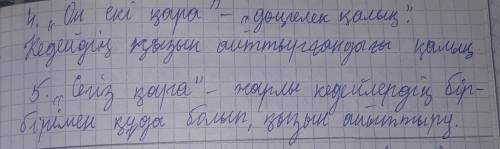 4. „Он екі қара" – „дөңгелек қалың".
Кедейдің қызын айттырғандағы қалың.
5. „Сегіз қара" – жарлы кедейлердің бір-
бірімен құда болып, қызын айыттыру.